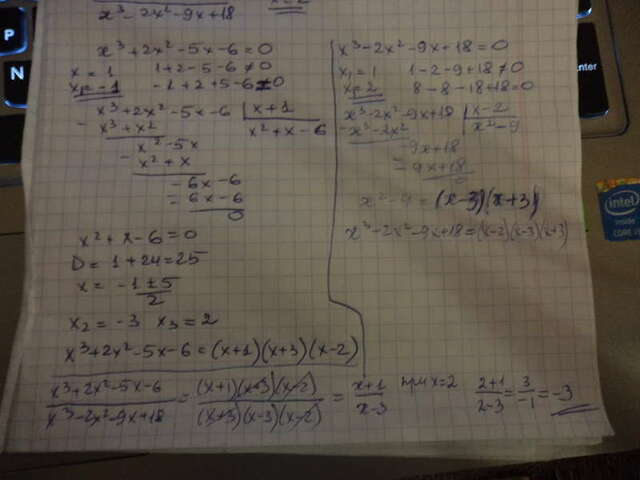 x³ - 2x² - 9x + 18
x³ + 2x² - 5x - 6 = 0
x = 1 1 + 2 - 5 - 6 ≠ 0
x₁ = -1 -1 + 2 + 5 - 6 = 0
x³ + 2x² - 5x - 6 | x + 1
- x³ + x² x² + x - 6
x² - 5x
- x² + x
- 6x - 6
- 6x - 6
0
x² + x - 6 = 0
D = 1 + 24 = 25
x = -1 ± 5
2
x₂ = -3 x₃ = 2
x³ + 2x² - 5x - 6 = (x+1)(x+3)(x-2)
x³ - 2x² - 9x + 18 = 0
x₁ = 1 1 - 2 - 9 + 18 ≠ 0
x = 2 8 - 8 - 18 + 18 = 0
x³ - 2x² - 9x + 18 | x - 2
- x³ - 2x² x² - 9
- 9x + 18
- 9x + 18
x² - 9 = (x-3)(x+3)
x³ - 2x² - 9x + 18 = (x-2)(x-3)(x+3)
x³ + 2x² - 5x - 6 / x³ - 2x² - 9x + 18 = (x+1)(x+3)(x-2) / (x+3)(x-3)(x-2) = x+1 / x-3 при x = 2 2+1 / 2-3 = 3 / -1 = -3
P
N
intel
inside
CORE i3